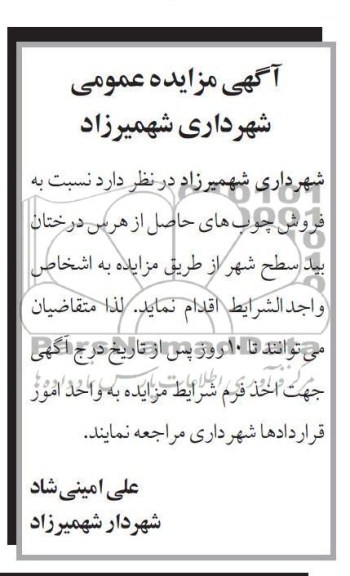 آگهی مزایده عمومی
شهرداری شهمیرزاد
شهرداری شهمیرزاد در نظر دارد نسبت به
فروش چوب های حاصل از هرس درختان
بید سطح شهر از طریق مزایده به اشخاص
واجدالشرایط اقدام نماید. لذا متقاضیان
می توانند تا ۱۰ روز پس از تاریخ درج آگهی
جهت اخذ فرم شرایط مزایده به واحد امور
قراردادها شهرداری مراجعه نمایند.
علی امینی شاد
شهردار شهمیرزاد
ParsNamadData